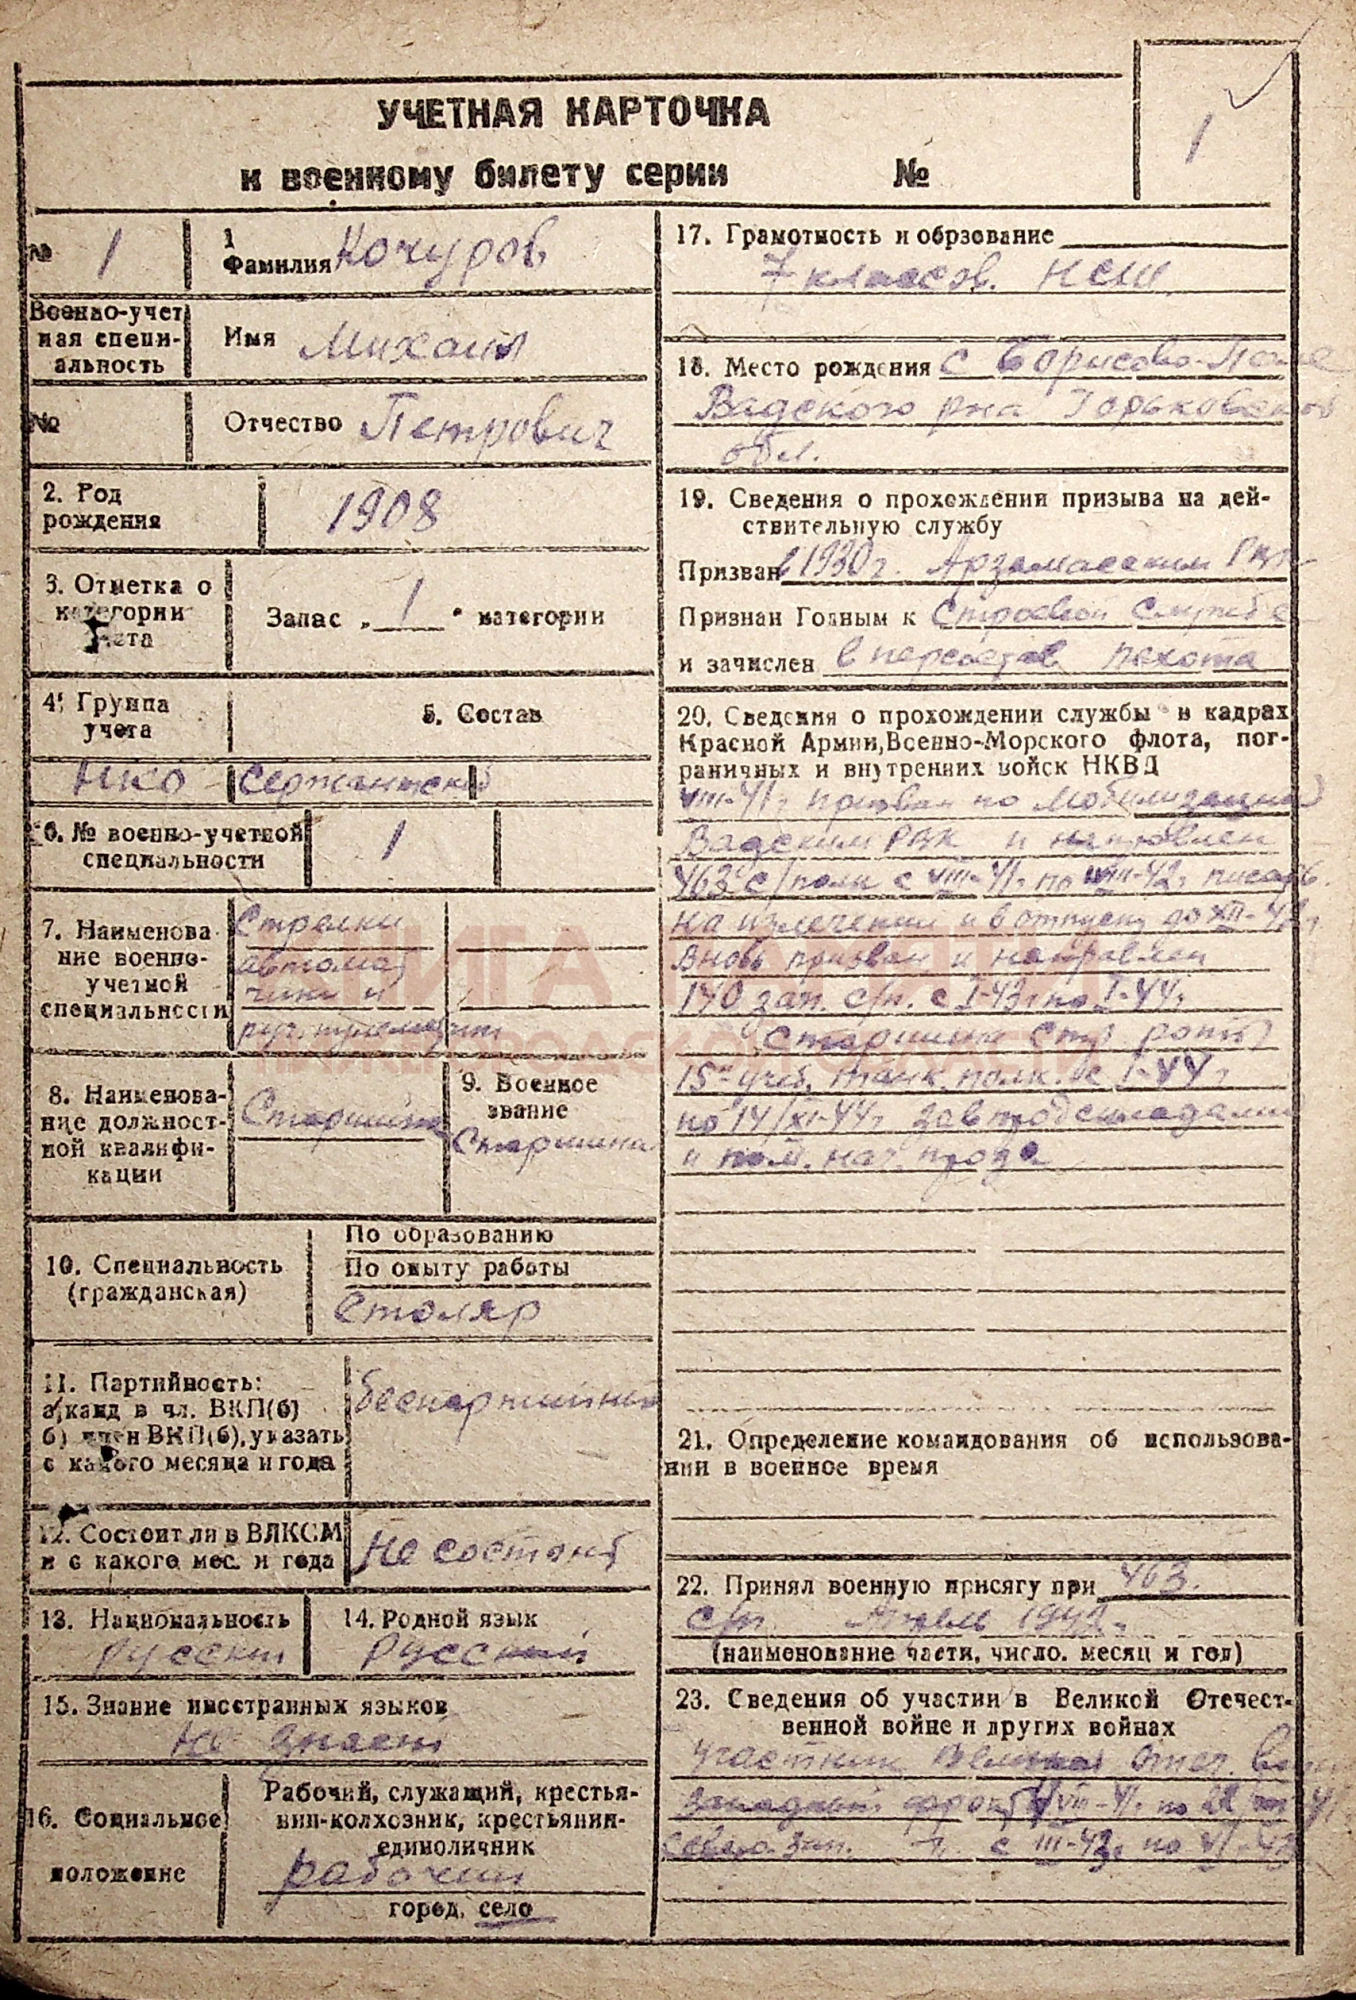 1
УЧЕТНАЯ КАРТОЧКА
к военному билету серии №
№ 1
1
Фамилия Кочуров
Военно-учет
ная специ-
альность
Имя Михаил
№
Отчество Петрович
2. Год
рождения
1908
3. Отметка о
категории
учета
Запас „ 1 " категории
4. Группа
учета
5. Состав
НКО Сержантский
6. № военно-учетной
специальности
1
7. Наименова
ние военно-
учетной
специальности
Стрелки
автомат
чики и
руч. пулеметчик
8. Наименова-
ние должност-
ной квалифи-
кации
Старшина
9. Военное
звание
Старшина
10. Специальность
(гражданская)
По образованию
По опыту работы
Столяр
11. Партийность:
а) канд в чл. ВКП(б)
б) член ВКП(б), указать
с какого месяца и года
беспартийный
12. Состоит ли в ВЛКСМ
и с какого мес. и года
Не состоит
13. Национальность
русский
14. Родной язык
Русский
15. Знание иностранных языков
Не знает
16. Социальное
положение
Рабочий, служащий, крестья-
нин-колхозник, крестьянин-
единоличник
рабочий
город, село
17. Грамотность и обрзование
7 классов. НСШ
18. Место рождения с Борисово-Поле
Вадского р-на Горьковской
обл.
19. Сведения о прохождении призыва на дей-
ствительную службу
Призван в 1930 г. Арзамасским
Признан Годным к Строевой Службе
и зачислен в пехота
20. Сведения о прохождении службы в кадрах
Красной Армии, Военно-Морского флота, пог-
раничных и внутренних войск НКВД
VIII-41 г призван по Мобилизации
Вадским РВК и направлен
463 с/полк с VIII-41 г по VIII-42 г писарь.
На излечении и в отпуску до XII-42 г
Вновь призван и направлен
140 зап. с/п. с I-43 г по I-44 г
старшина стр роты
15й учеб. танк. полк. с I-44 г
по 14/XI-44 г зав продскладами
и пом. нач. прода
21. Определение командования об использова-
нии в военное время
22. Принял военную присягу при 463.
с/п. Апрель 1942 г.
(наименование части, число, месяц и год)
23. Сведения об участии в Великой Отечест-
венной войне и других войнах
участник Великой Отеч.
Западный фронт
Северо. Зап. с III-43 г по VI-43
КНИГА ПАМЯТИ
НИЖЕГОРОДСКОЙ ОБЛАСТИ